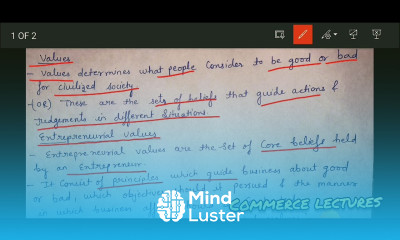 1 OF 2
Values
- Values determines what people consider to be good or bad
for civilized society.
-(OR) These are the sets of beliefs that guide actions &
Judgements in different situations.
Entrepreneurial values
- Entrepreneurial values are the set of Core beliefs held
by an Entrepreneur.
- It consist of principles which guide business about good
or bad, which objective should be persued & the manner
in which business
Mind
Luster
COMMERCE LECTURES